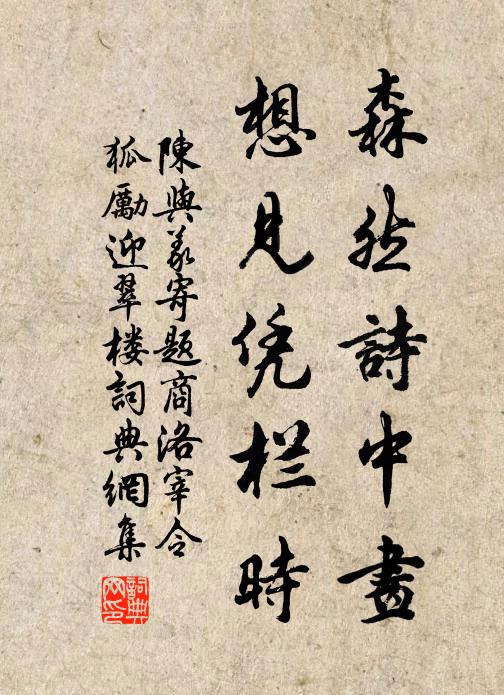 森然詩中畫
想見凭栏時
陳與義寄題商洛宰令
狐勵迎翠楼詞典網集
詞典网印